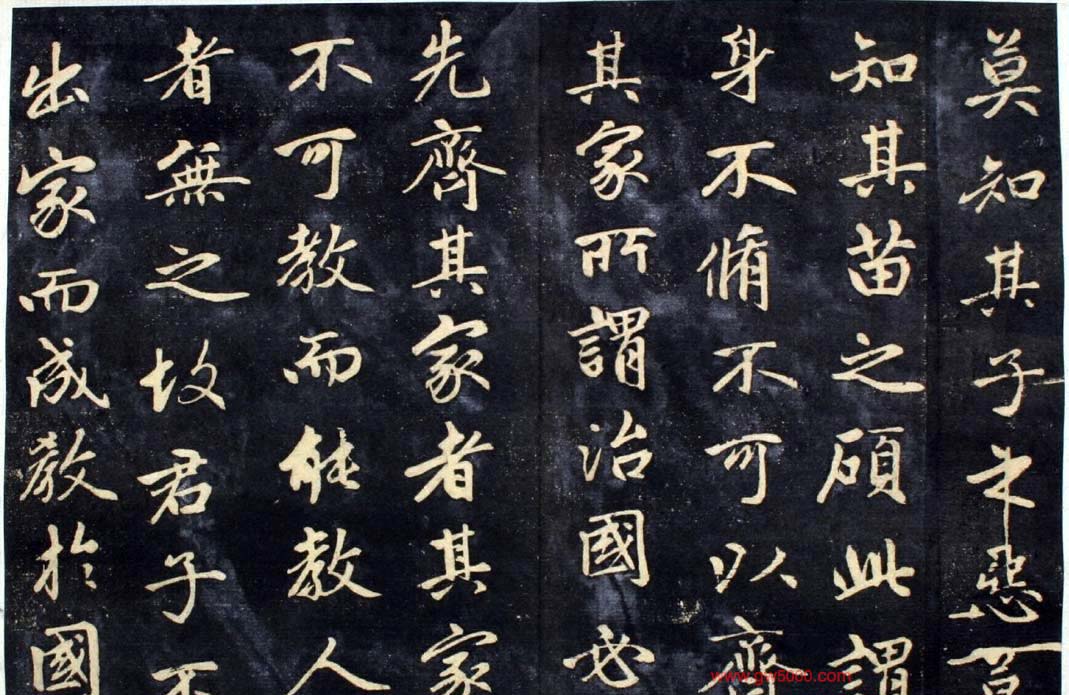 莫知其子之惡
知其苗之碩此謂
身不脩不可以齊
其家所謂治國必
先齊其家者其家
不可教而能教人
者無之故君子不
出家而成教於國